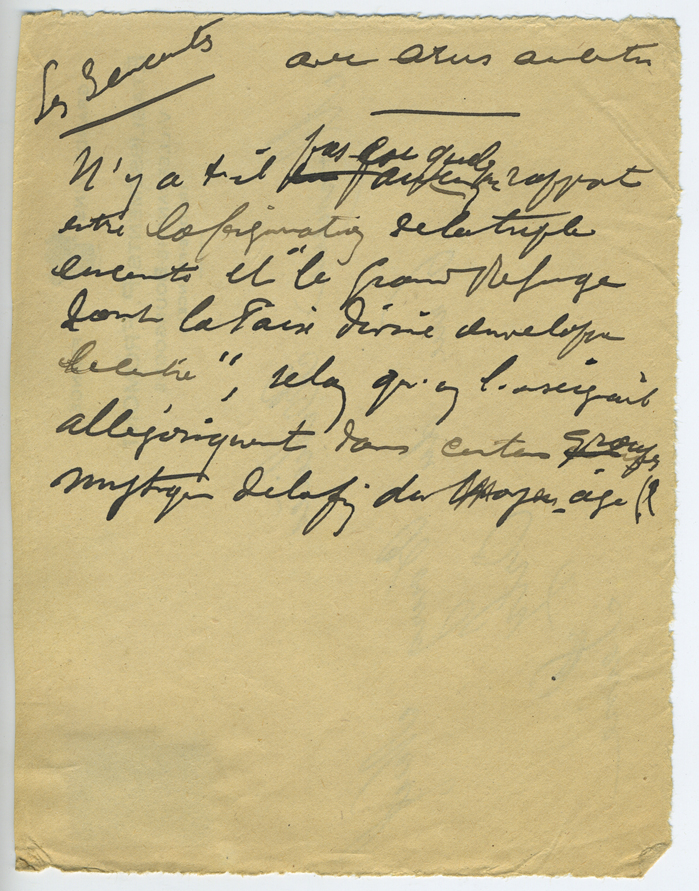 Les Enceints
avec
N'y a t-il pas quelque rapport
entre la figuration de la triple
enceinte et "le Grand Refuge
dont la Paix divine enveloppe
le centre", selon qu'on l'enseignait
allégoriquement dans certains groupes
mystiques de la fin du Moyen-âge (?